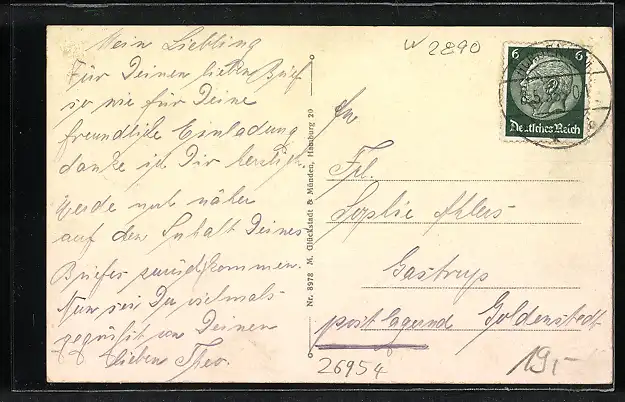 Mein Liebling
Für Deinen lieben Brief
so wie für Deine
freundliche Einladung
danke ich Dir herzlich.
Werde noch näher
auf den Inhalt Deines
Briefes zurückkommen.
Nun sei Du vielmals
gegrüßt von Deinen
lieben Theo.
Nr. 8978 M. Glückstadt & Münden, Hamburg 20
W 2890
6 6
Deutsches Reich
An
Frl.
Sophie Ahlers
Gastrup
postlagernd Goldenstedt
26954
19,-